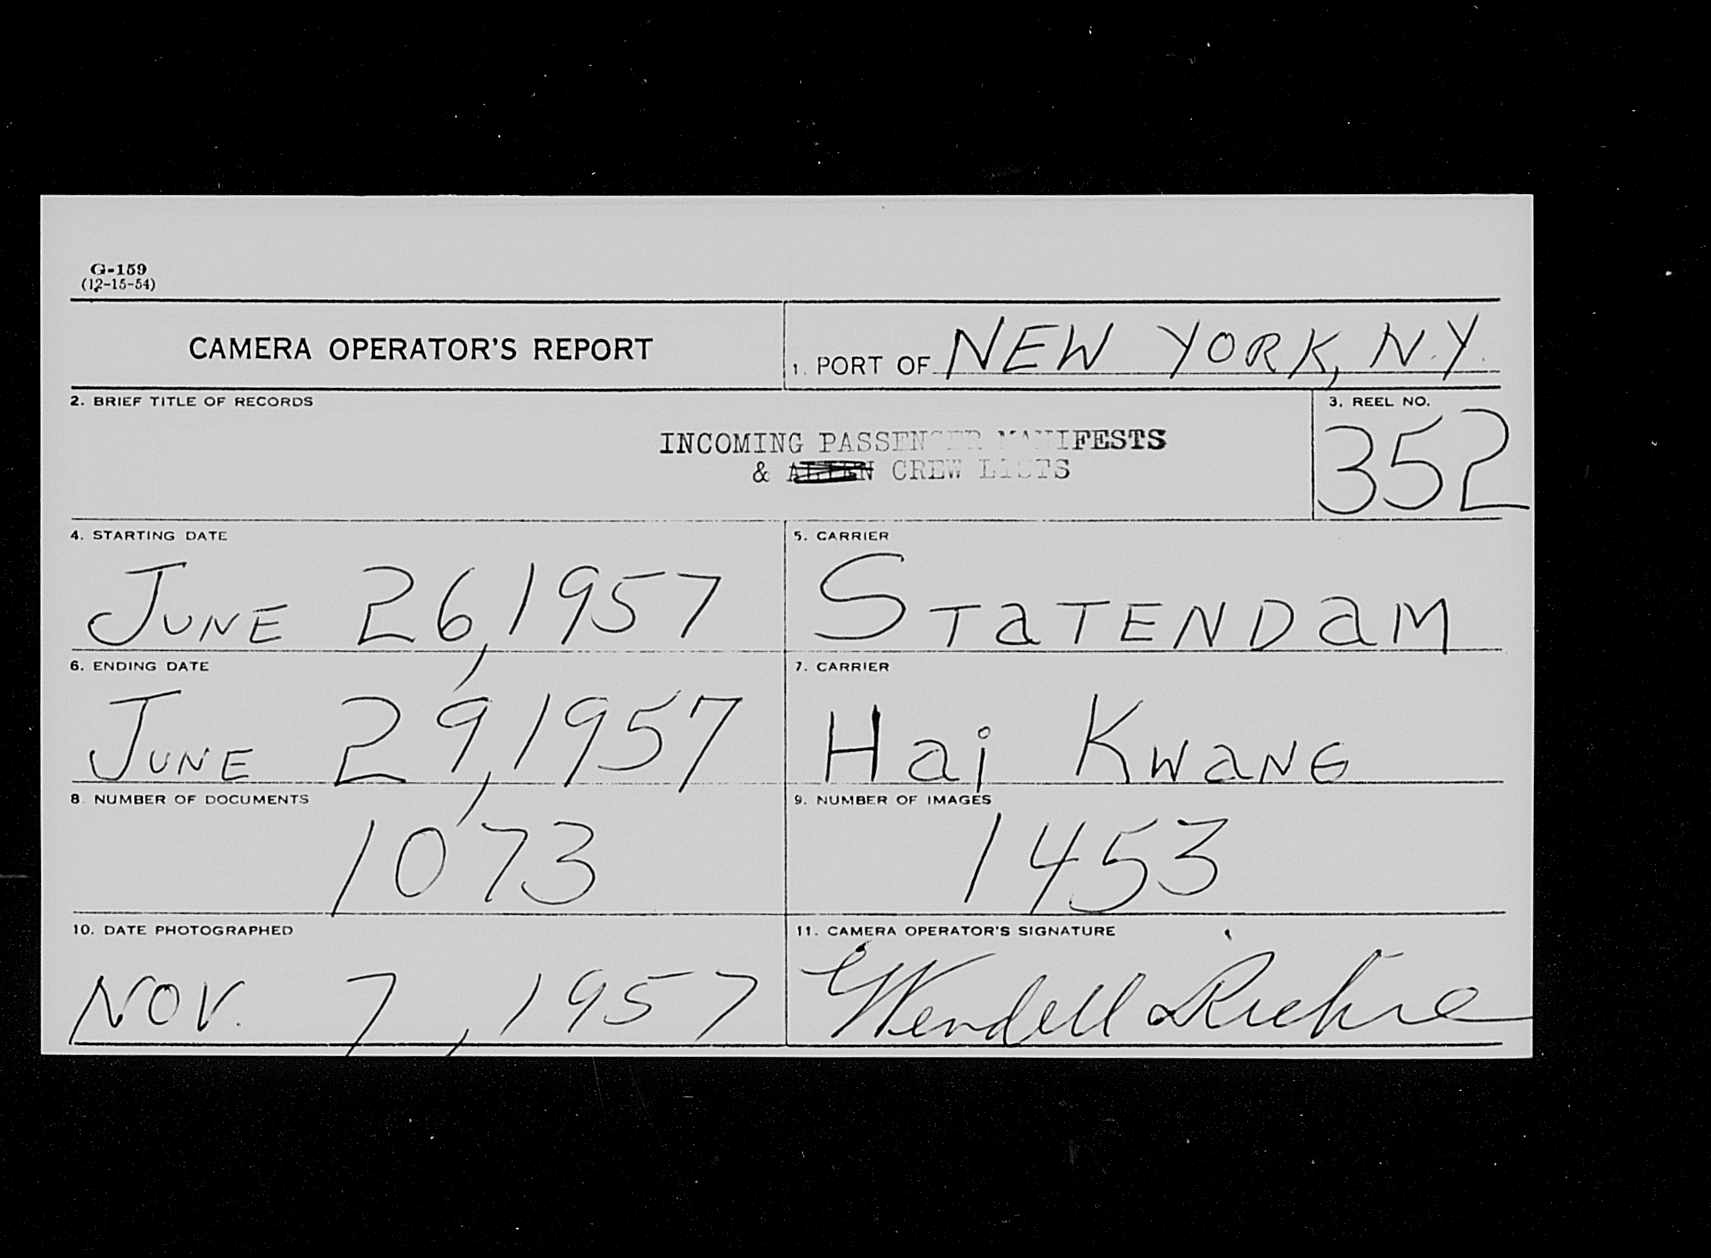 G-159
(12-15-54)
CAMERA OPERATOR'S REPORT
1. PORT OF NEW YORK, N.Y.
2. BRIEF TITLE OF RECORDS
INCOMING PASSENGER MANIFESTS
& ALIEN CREW LISTS
3. REEL NO.
352
4. STARTING DATE
JUNE 26, 1957
5. CARRIER
STaTENDaM
6. ENDING DATE
JUNE 29, 1957
7. CARRIER
Hai KWaNG
8. NUMBER OF DOCUMENTS
1073
9. NUMBER OF IMAGES
1453
10. DATE PHOTOGRAPHED
NOV. 7, 1957
11. CAMERA OPERATOR'S SIGNATURE
Wendell